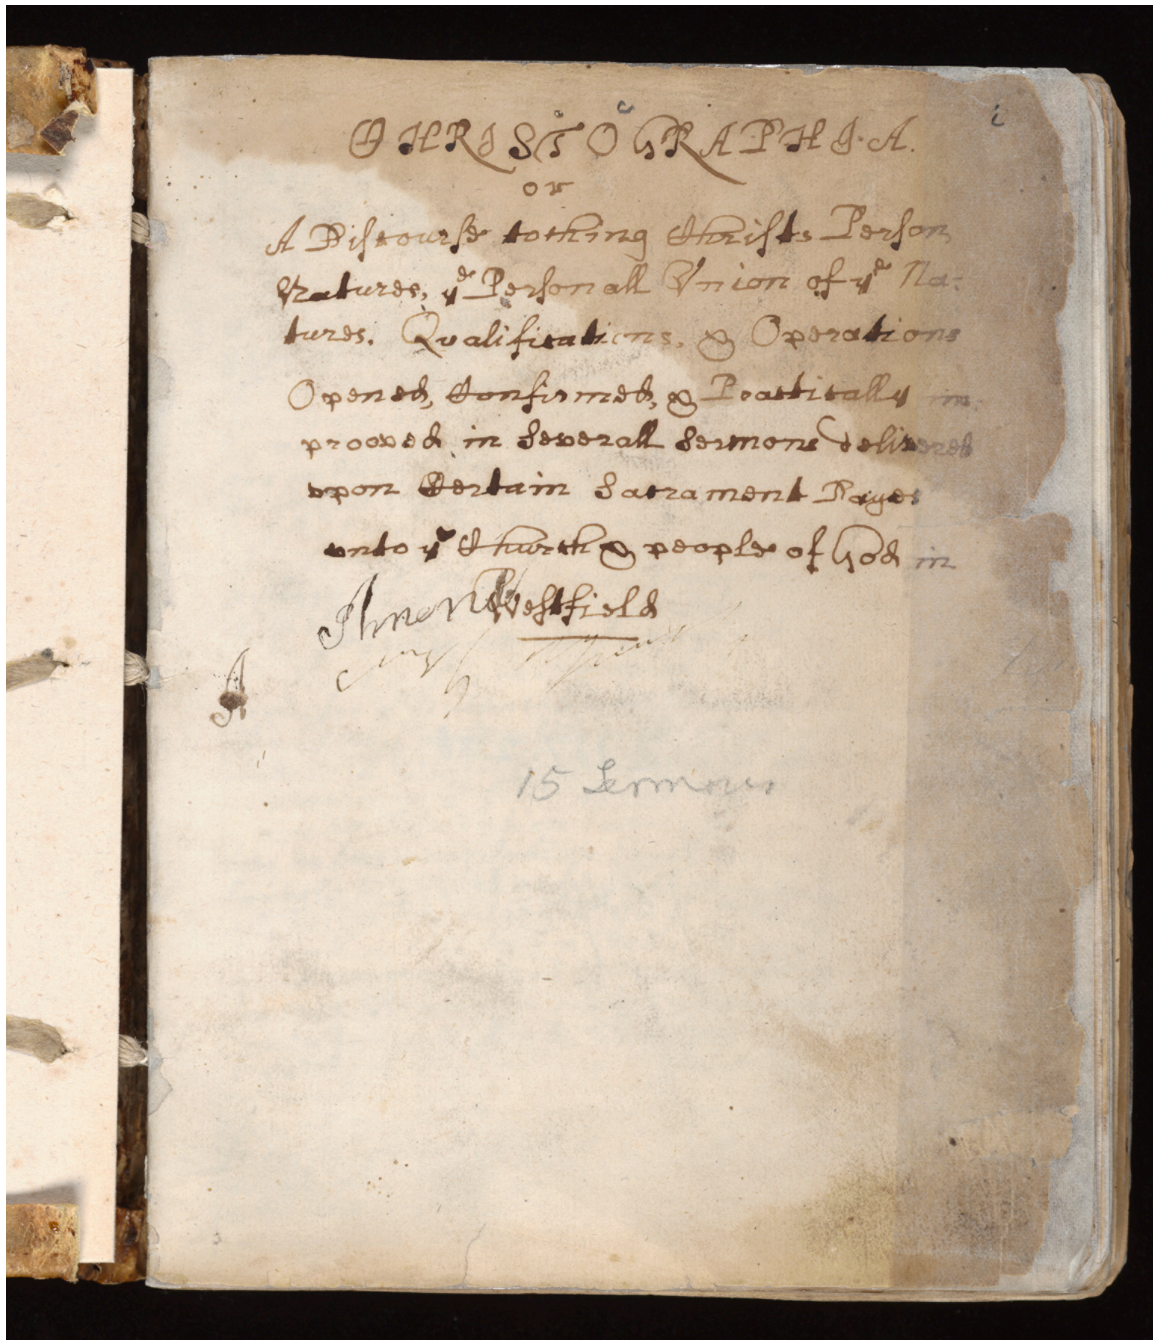 i
CHRISTOGRAPHIA.
or
A Discourse toching Christs Person,
Natures, yᵉ Personall Union of yᵉ Na:
tures. Qualifications, & Operations
Opened, Confirmed, & Practically im:
prooved in Severall Sermons delivered
upon Certain Sacrament Dayes
unto yᵉ Church & people of God in
Westfield
A
15 Sermons